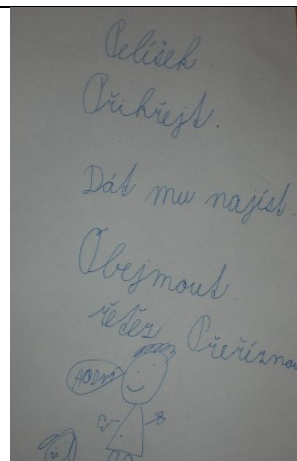 Pelíšek.
Přikřejt.
Dát mu najíst.
Obejmout.
řetěz Přeříznou